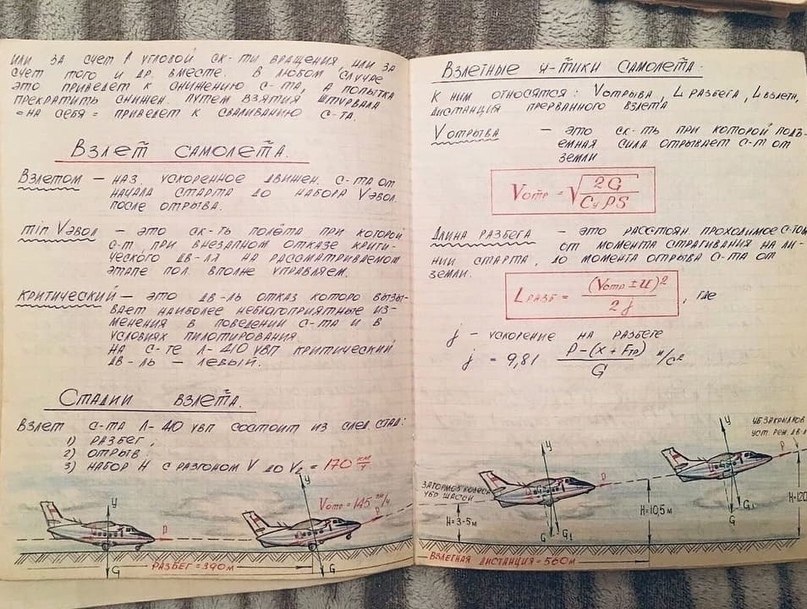 ИЛИ ЗА СЧЕТ ↑ УГЛОВОЙ СК-ТИ ВРАЩЕНИЯ, ИЛИ ЗА
СЧЕТ ТОГО И ДР. ВМЕСТЕ. В ЛЮБОМ СЛУЧАЕ
ЭТО ПРИВЕДЕТ К СНИЖЕНИЮ С-ТА, А ПОПЫТКА
ПРЕКРАТИТЬ СНИЖЕН. ПУТЕМ ВЗЯТИЯ ШТУРВАЛА
"НА СЕБЯ" ПРИВЕДЕТ К СВАЛИВАНИЮ С-ТА.
ВЗЛЕТ САМОЛЕТА.
ВЗЛЕТОМ — НАЗ. УСКОРЕННОЕ ДВИЖЕН. С-ТА ОТ
НАЧАЛА СТАРТА ДО НАБОРА VЭВОЛ.
ПОСЛЕ ОТРЫВА.
min VЭВОЛ — ЭТО СК-ТЬ ПОЛЕТА ПРИ КОТОРОЙ
С-Т, ПРИ ВНЕЗАПНОМ ОТКАЗЕ КРИТИ-
ЧЕСКОГО ДВ-ЛЯ НА РАССМАТРИВАЕМОМ
ЭТАПЕ ПОЛ. ВПОЛНЕ УПРАВЛЯЕМ.
КРИТИЧЕСКИЙ — ЭТО ДВ-ЛЬ ОТКАЗ КОТОРО ВЫЗЫ-
ВАЕТ НАИБОЛЕЕ НЕБЛАГОПРИЯТНЫЕ ИЗ-
МЕНЕНИЯ В ПОВЕДЕНИИ С-ТА И В
УСЛОВИЯХ ПИЛОТИРОВАНИЯ.
НА С-ТЕ Л-410 УВП КРИТИЧЕСКИЙ
ДВ-ЛЬ — ЛЕВЫЙ.
СТАДИИ ВЗЛЕТА.
ВЗЛЕТ С-ТА Л-410 УВП СОСТОИТ ИЗ СЛЕД. СТАД:
1) РАЗБЕГ,
2) ОТРЫВ
3) НАБОР Н С РАЗГОНОМ V ДО V2 = 170 км/ч
Y
P
G
РАЗБЕГ = 390 м
Y
Vотр = 145 км/ч
P
G
ВЗЛЕТНЫЕ Х-ТИКИ САМОЛЕТА.
К НИМ ОТНОСЯТСЯ: VОТРЫВА, L РАЗБЕГА, L ВЗЛЕТН.,
ДИСТАНЦИЯ ПРЕРВАННОГО ВЗЛЕТА
V ОТРЫВА — ЭТО СК-ТЬ ПРИ КОТОРОЙ ПОДЪ-
ЕМНАЯ СИЛА ОТРЫВАЕТ С-Т ОТ
ЗЕМЛИ
Vотр = √(2G / CyρS)
ДЛИНА РАЗБЕГА — ЭТО РАССТОЯН. ПРОХОДИМОЕ С-ТОМ
ОТ МОМЕНТА СТРАГИВАНИЯ НА ЛИ-
НИИ СТАРТА, ДО МОМЕНТА ОТРЫВА С-ТА ОТ
ЗЕМЛИ.
L РАЗБ = (Vотр ± U)² / 2j , ГДЕ
j — УСКОРЕНИЕ НА РАЗБЕГЕ
j = 9,81 P-(X+Fтр) / G м/с²
ЗАТОРМОЗ КОЛЕСА
УБР. ШАССИ
H=3-5м
Y
P
G
G1
H=10,5м
Y
УБ. ЗАКРЫЛКОВ
УСТ. РЕЖ. ДВ-Л
P
G
G1
H=120
ВЗЛЕТНАЯ ДИСТАНЦИЯ = 560м